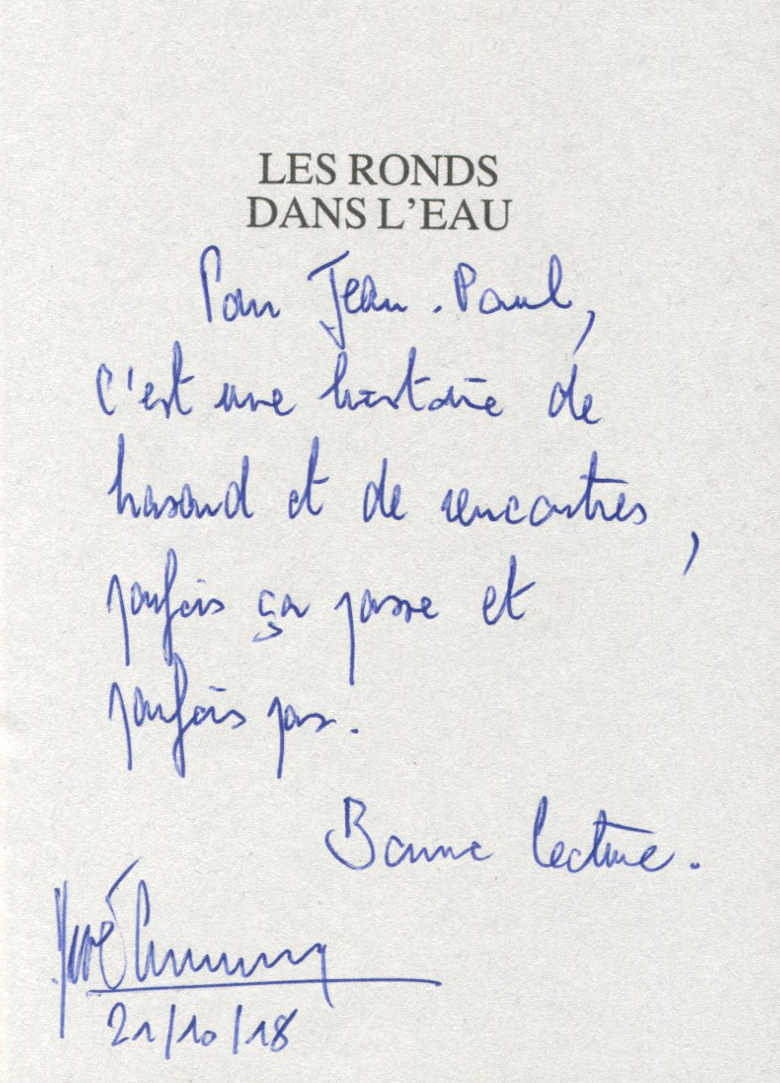 LES RONDS
DANS L'EAU
Pour Jean-Paul,
c'est une histoire de
hasard et de rencontres,
parfois ça passe et
parfois pas.
Bonne lecture.
21/10/18